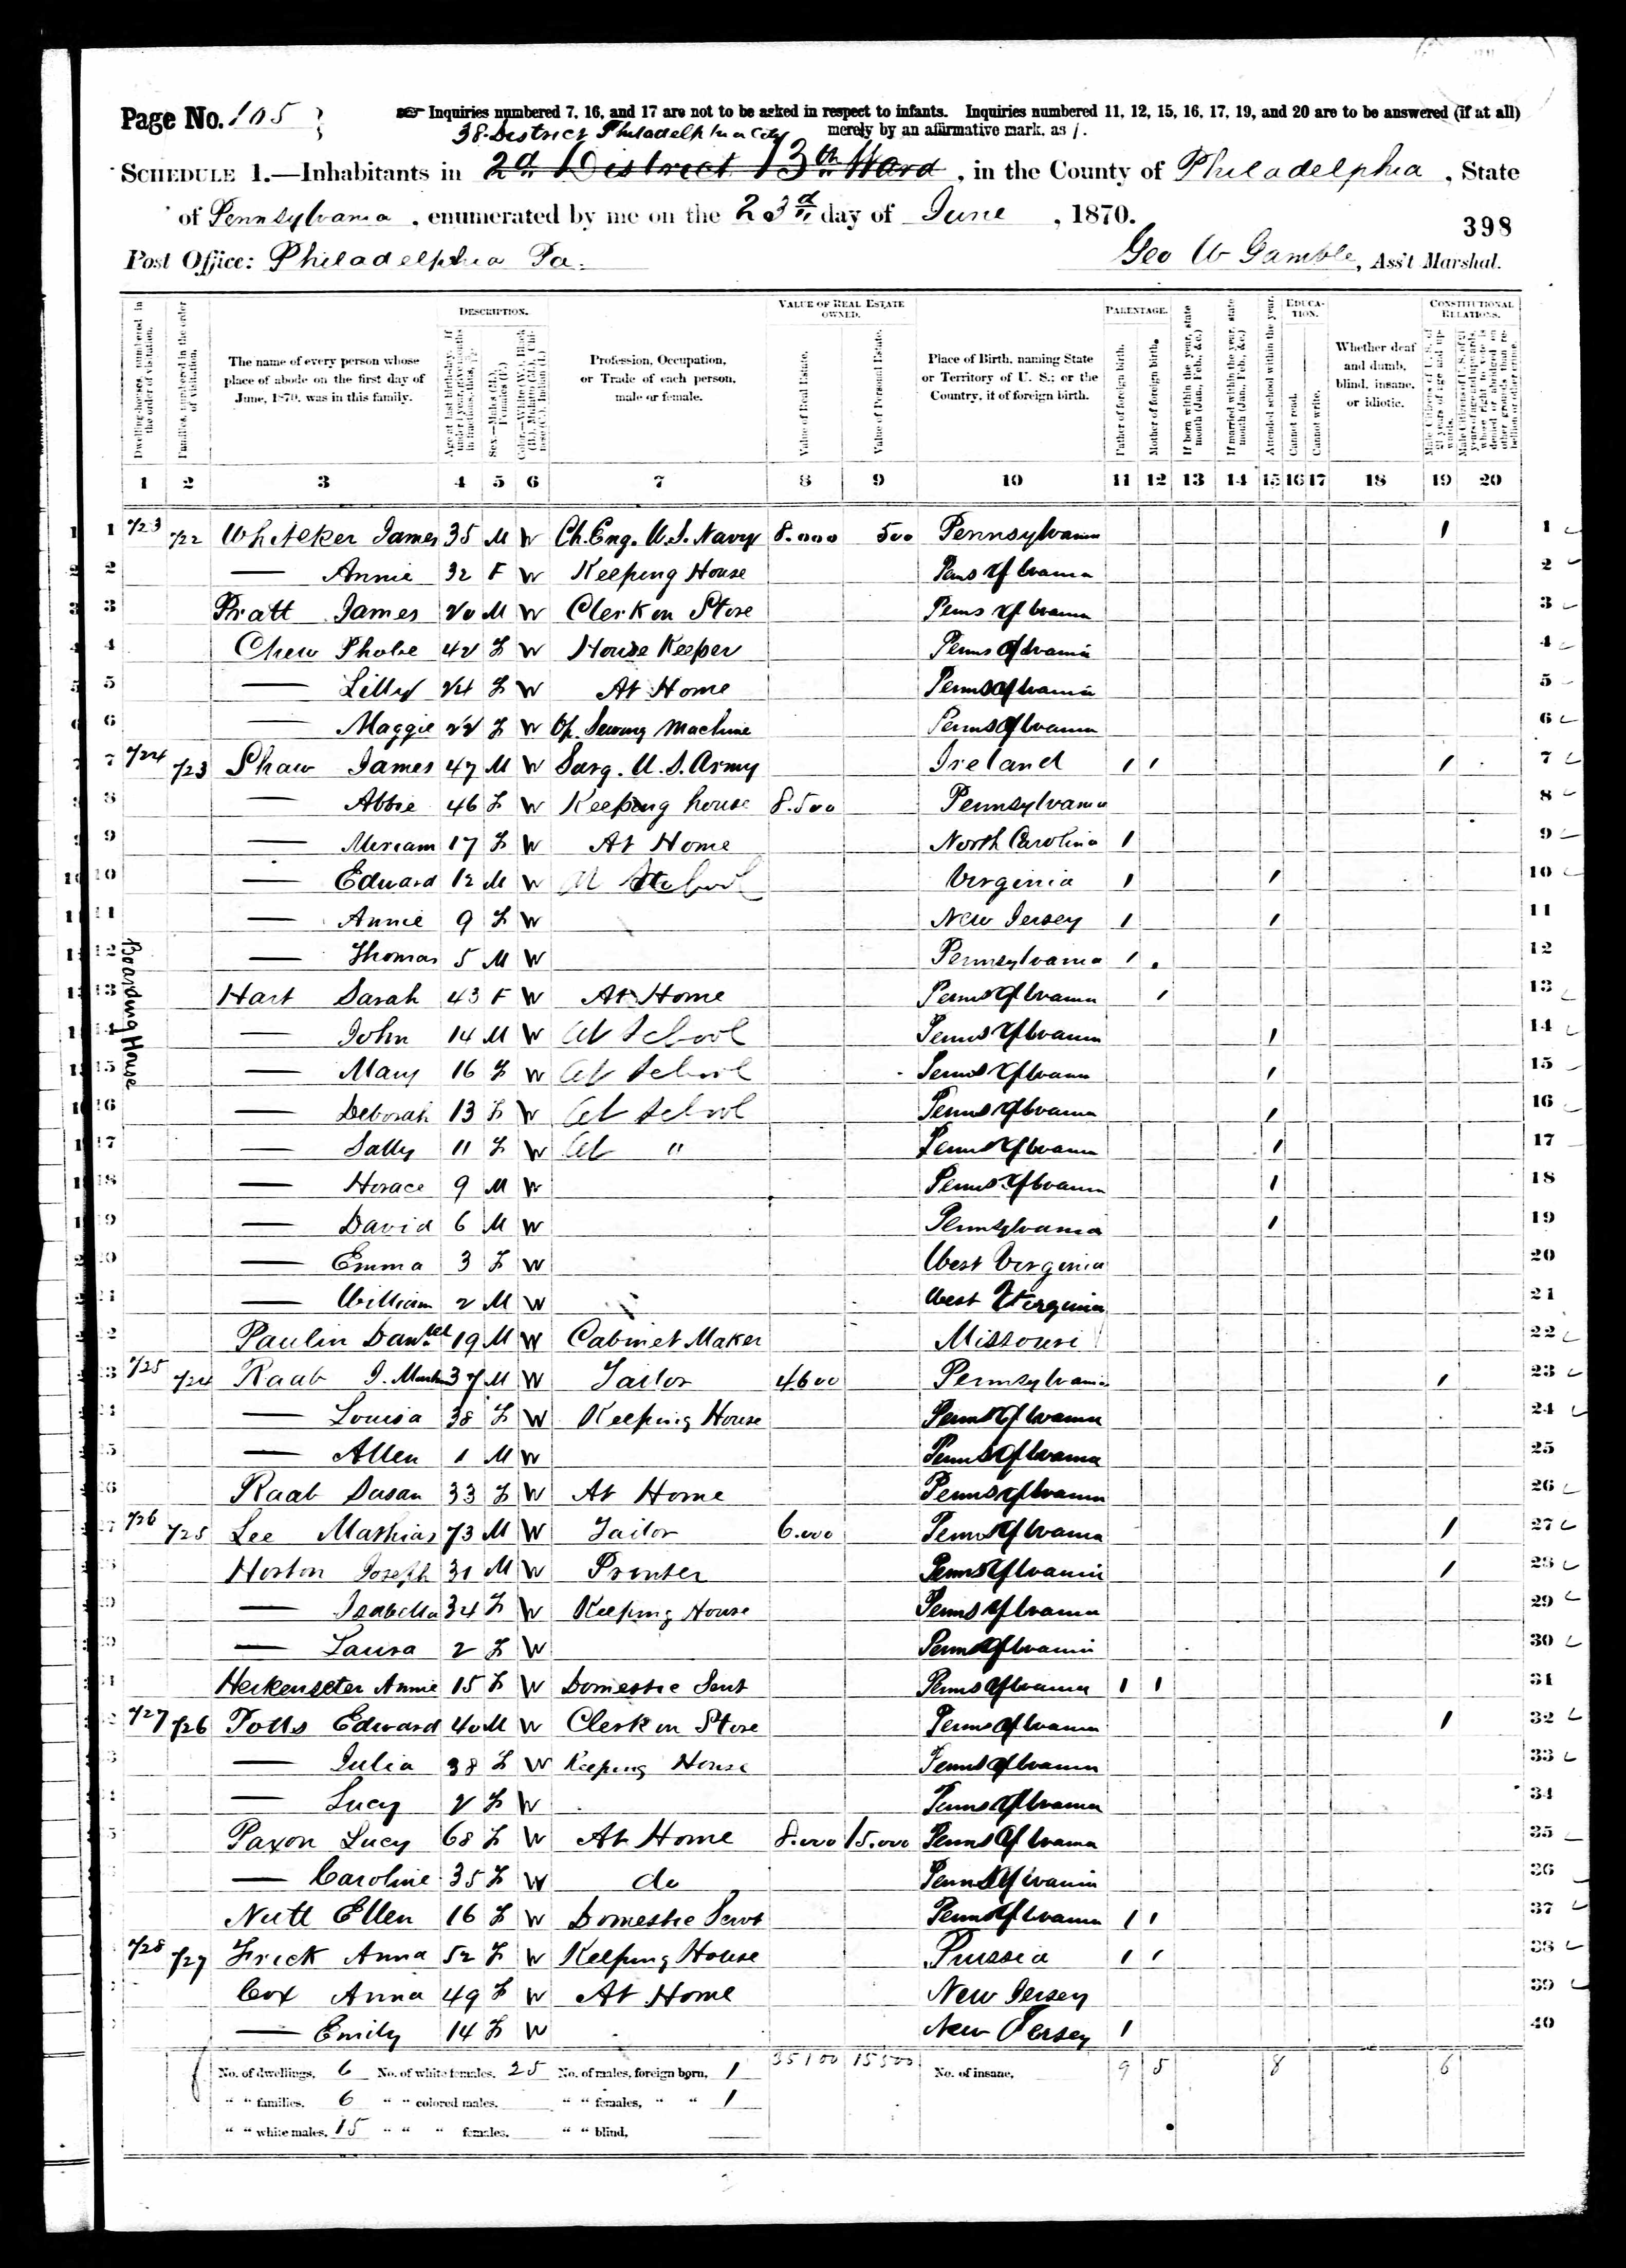 Page No. 105
☞ Inquiries numbered 7, 16, and 17 are not to be asked in respect to infants. Inquiries numbered 11, 12, 15, 16, 17, 19, and 20 are to be answered (if at all)
merely by an affirmative mark, as /.
38 District Philadelphia City
SCHEDULE 1.—Inhabitants in 2d District 13th Ward, in the County of Philadelphia, State
of Pennsylvania, enumerated by me on the 23d day of June, 1870.
398
Post Office: Philadelphia Pa. Geo W Gamble, Ass't Marshal.
DESCRIPTION. VALUE OF REAL ESTATE OWNED. PARENTAGE. EDUCATION. CONSTITUTIONAL RELATIONS.
Dwelling-houses, numbered in the order of visitation.
Families, numbered in the order of visitation.
The name of every person whose place of abode on the first day of June, 1870, was in this family.
Sex.—Males (M.), Females (F.)
Profession, Occupation, or Trade of each person, male or female.
Value of Real Estate.
Value of Personal Estate.
Place of Birth, naming State or Territory of U. S.; or the Country, if of foreign birth.
Father of foreign birth.
Mother of foreign birth.
If born within the year, state month (Jan., Feb., &c.)
If married within the year, state month (Jan., Feb., &c.)
Attended school within the year.
Cannot read.
Cannot write.
Whether deaf and dumb, blind, insane, or idiotic.
1 2 3 4 5 6 7 8 9 10 11 12 13 14 15 16 17 18 19 20
1 723 722 Whiteker James 35 M W Ch. Eng. U.S. Navy 8.000 500 Pennsylvania / 1
2 — Annie 32 F W Keeping House Pennsylvania 2
3 Pratt James 20 M W Clerk in Store Pennsylvania 3
4 Chew Phobe 42 F W House Keeper Pennsylvania 4
5 — Lilly 24 F W At Home Pennsylvania 5
6 — Maggie 22 F W Op. Sewing Machine Pennsylvania 6
7 724 723 Shaw James 47 M W Surg. U.S. Army Ireland / / / 7
8 — Abbie 46 F W Keeping house 8.500 Pennsylvania 8
9 — Meriam 17 F W At Home North Carolina / 9
10 — Edward 12 M W At School Virginia / / 10
11 — Annie 9 F W New Jersey / / 11
12 — Thomas 5 M W Pennsylvania / 12
Boarding House
13 Hart Sarah 43 F W At Home Pennsylvania / 13
14 — John 14 M W At School Pennsylvania / 14
15 — Mary 16 F W At School Pennsylvania / 15
16 — Deborah 13 F W At School Pennsylvania / 16
17 — Sally 11 F W At " Pennsylvania / 17
18 — Horace 9 M W Pennsylvania / 18
19 — David 6 M W Pennsylvania / 19
20 — Emma 3 F W West Virginia 20
21 — William 2 M W West Virginia 21
22 Paulin Daniel 19 M W Cabinet Maker Missouri 22
23 725 724 Raab J. 37 M W Tailor 4600 Pennsylvania / 23
24 — Louisa 38 F W Keeping House Pennsylvania 24
25 — Allen 1 M W Pennsylvania 25
26 Raab Susan 33 F W At Home Pennsylvania 26
27 726 725 Lee Mathias 73 M W Tailor 6.000 Pennsylvania / 27
28 Horton Joseph 31 M W Printer Pennsylvania / 28
29 — Isabella 34 F W Keeping House Pennsylvania 29
30 — Laura 2 F W Pennsylvania 30
31 Annie 15 F W Domestic Servt Pennsylvania / / 31
32 727 726 Potts Edward 40 M W Clerk in Store Pennsylvania / 32
33 — Julia 38 F W Keeping House Pennsylvania 33
34 — Lucy 2 F W Pennsylvania 34
35 Paxon Lucy 68 F W At Home 8.000 15.000 Pennsylvania 35
36 — Caroline 35 F W do Pennsylvania 36
37 Nutt Ellen 16 F W Domestic Servt Pennsylvania / / 37
38 728 727 Frick Anna 52 F W Keeping House Prussia / / 38
39 Cox Anna 49 F W At Home New Jersey 39
40 — Emily 14 F W New Jersey / 40
No. of dwellings, 6 No. of white females, 25 No. of males, foreign born, 1 35100 15500 No. of insane, 9 5 8 6
" " families, 6 " " colored males, " " females, " " 1
" " white males, 15 " " " females, " " blind,